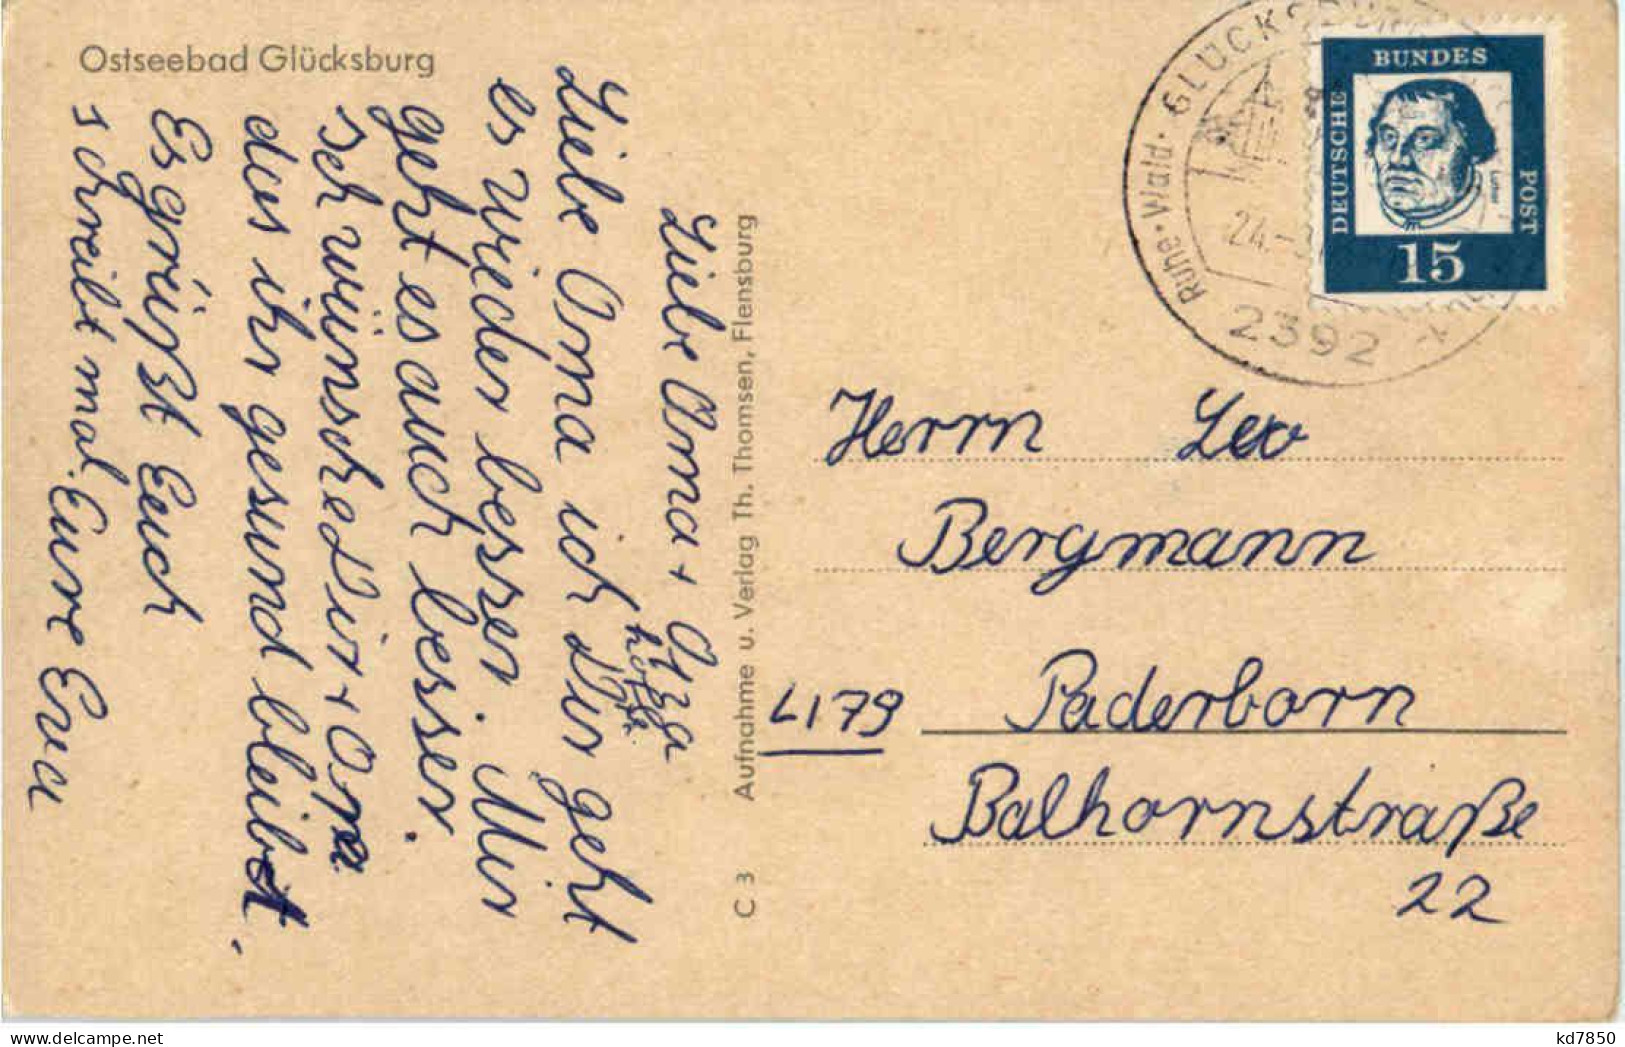 Ostseebad Glücksburg
Liebe Oma + Otza
Liebe Oma ich hoffe Dir geht
es wieder besser. Mir
geht es auch besser.
Ich wünsche Dir + Opa
das ihr gesund bleibt.
Es grüßt Euch
schreibt mal. Eure Eva
C 3 Aufnahme u. Verlag Th. Thomsen, Flensburg
GLÜCKSBURG
Ruhe · Wald ·
24.-
2392
DEUTSCHE
BUNDES
POST
Luther
15
Herrn Leo
Bergmann
L179
Paderborn
Balhornstraße
22
kd7850